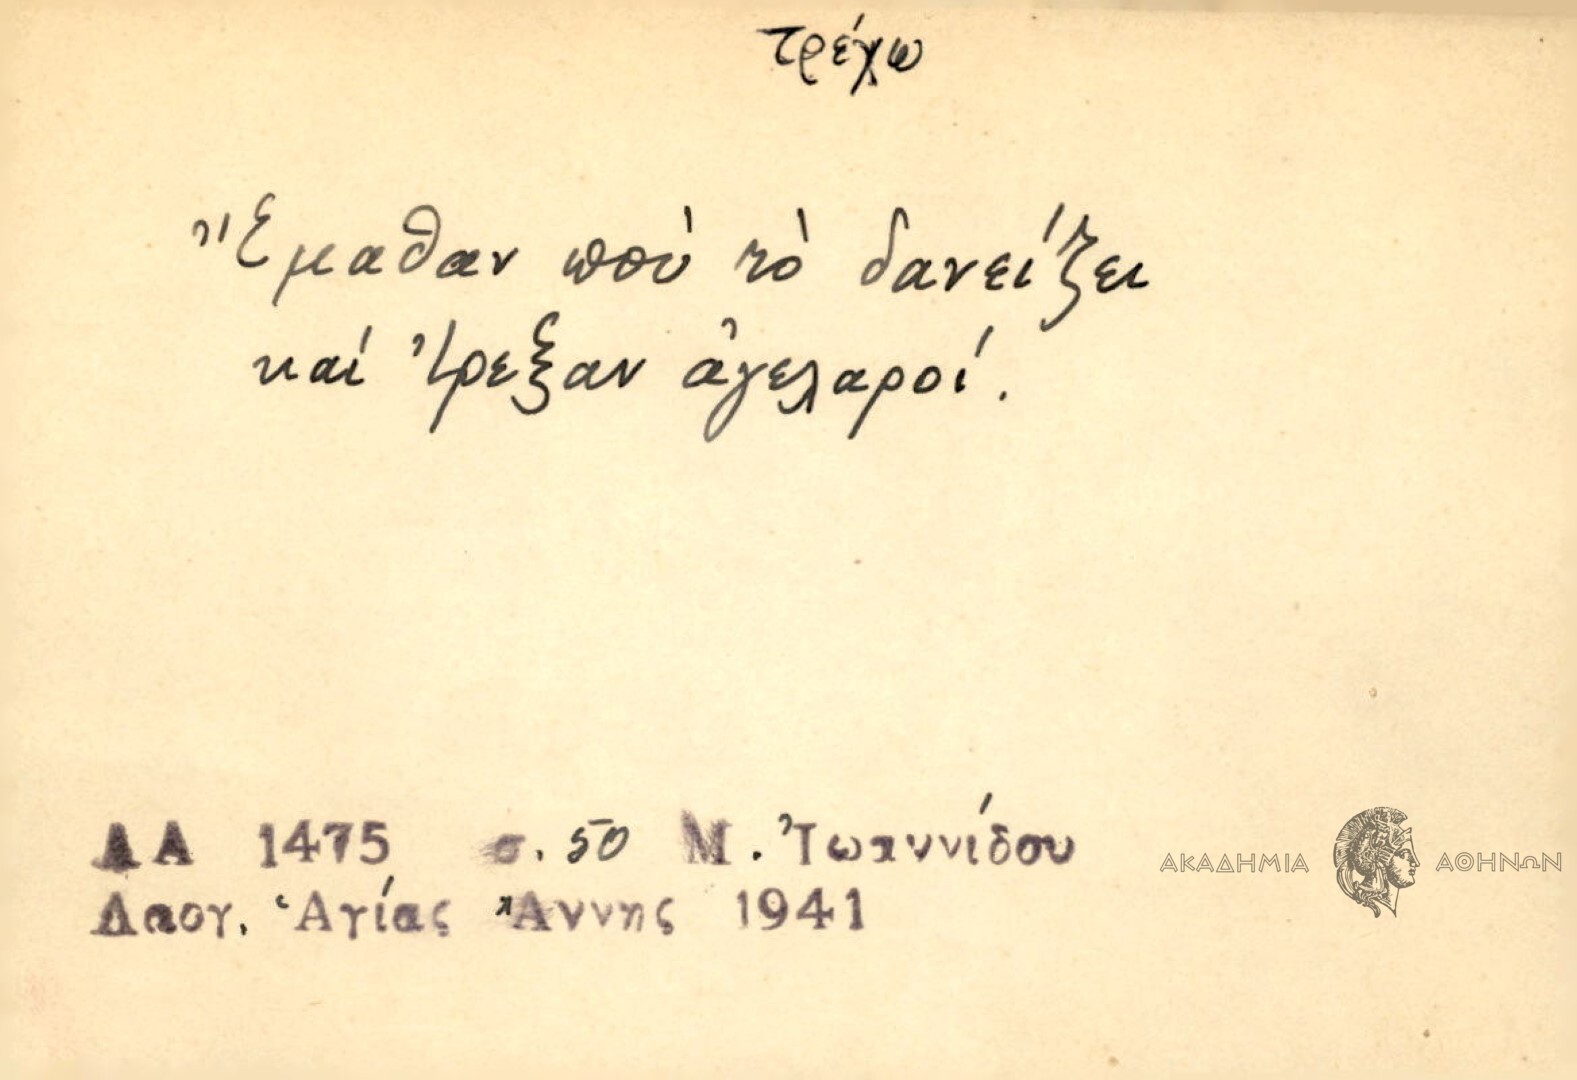 τρέχω
Ἔμαθαν ποὺ τὸ δανείζει
καί ἔτρεξαν ἀγελαροί.
ΛΑ 1475 σ. 50 Μ. Ἰωαννίδου
Λαογ. Ἁγίας Ἄννης 1941
ΑΚΑΔΗΜΙΑ ΑΘΗΝΩΝ